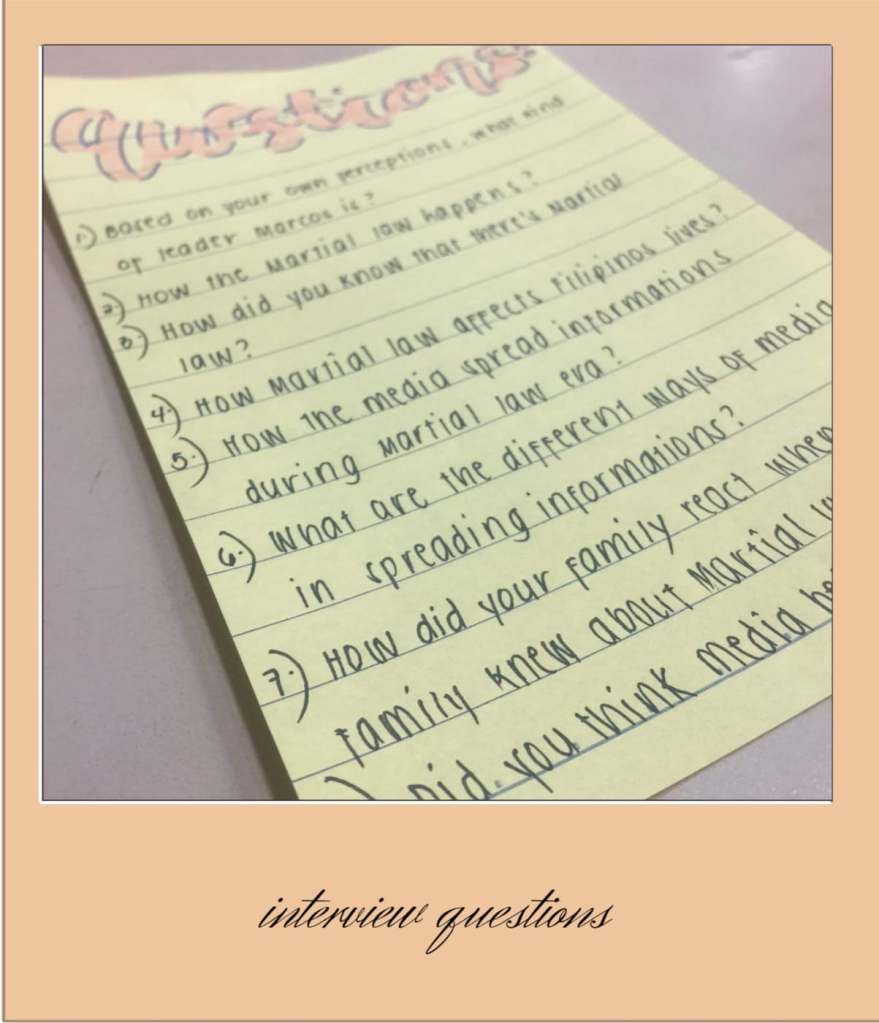 Questions
1.) Based on your own perceptions, what kind
of leader Marcos is?
2.) How the Martial law happens?
3.) How did you know that there's Martial
law?
4.) How Martial law affects Filipinos lives?
5.) How the media spread informations
during Martial law era?
6.) What are the different ways of media
in spreading informations?
7.) How did your family react when
family knew about Martial
Did you think media
interview questions